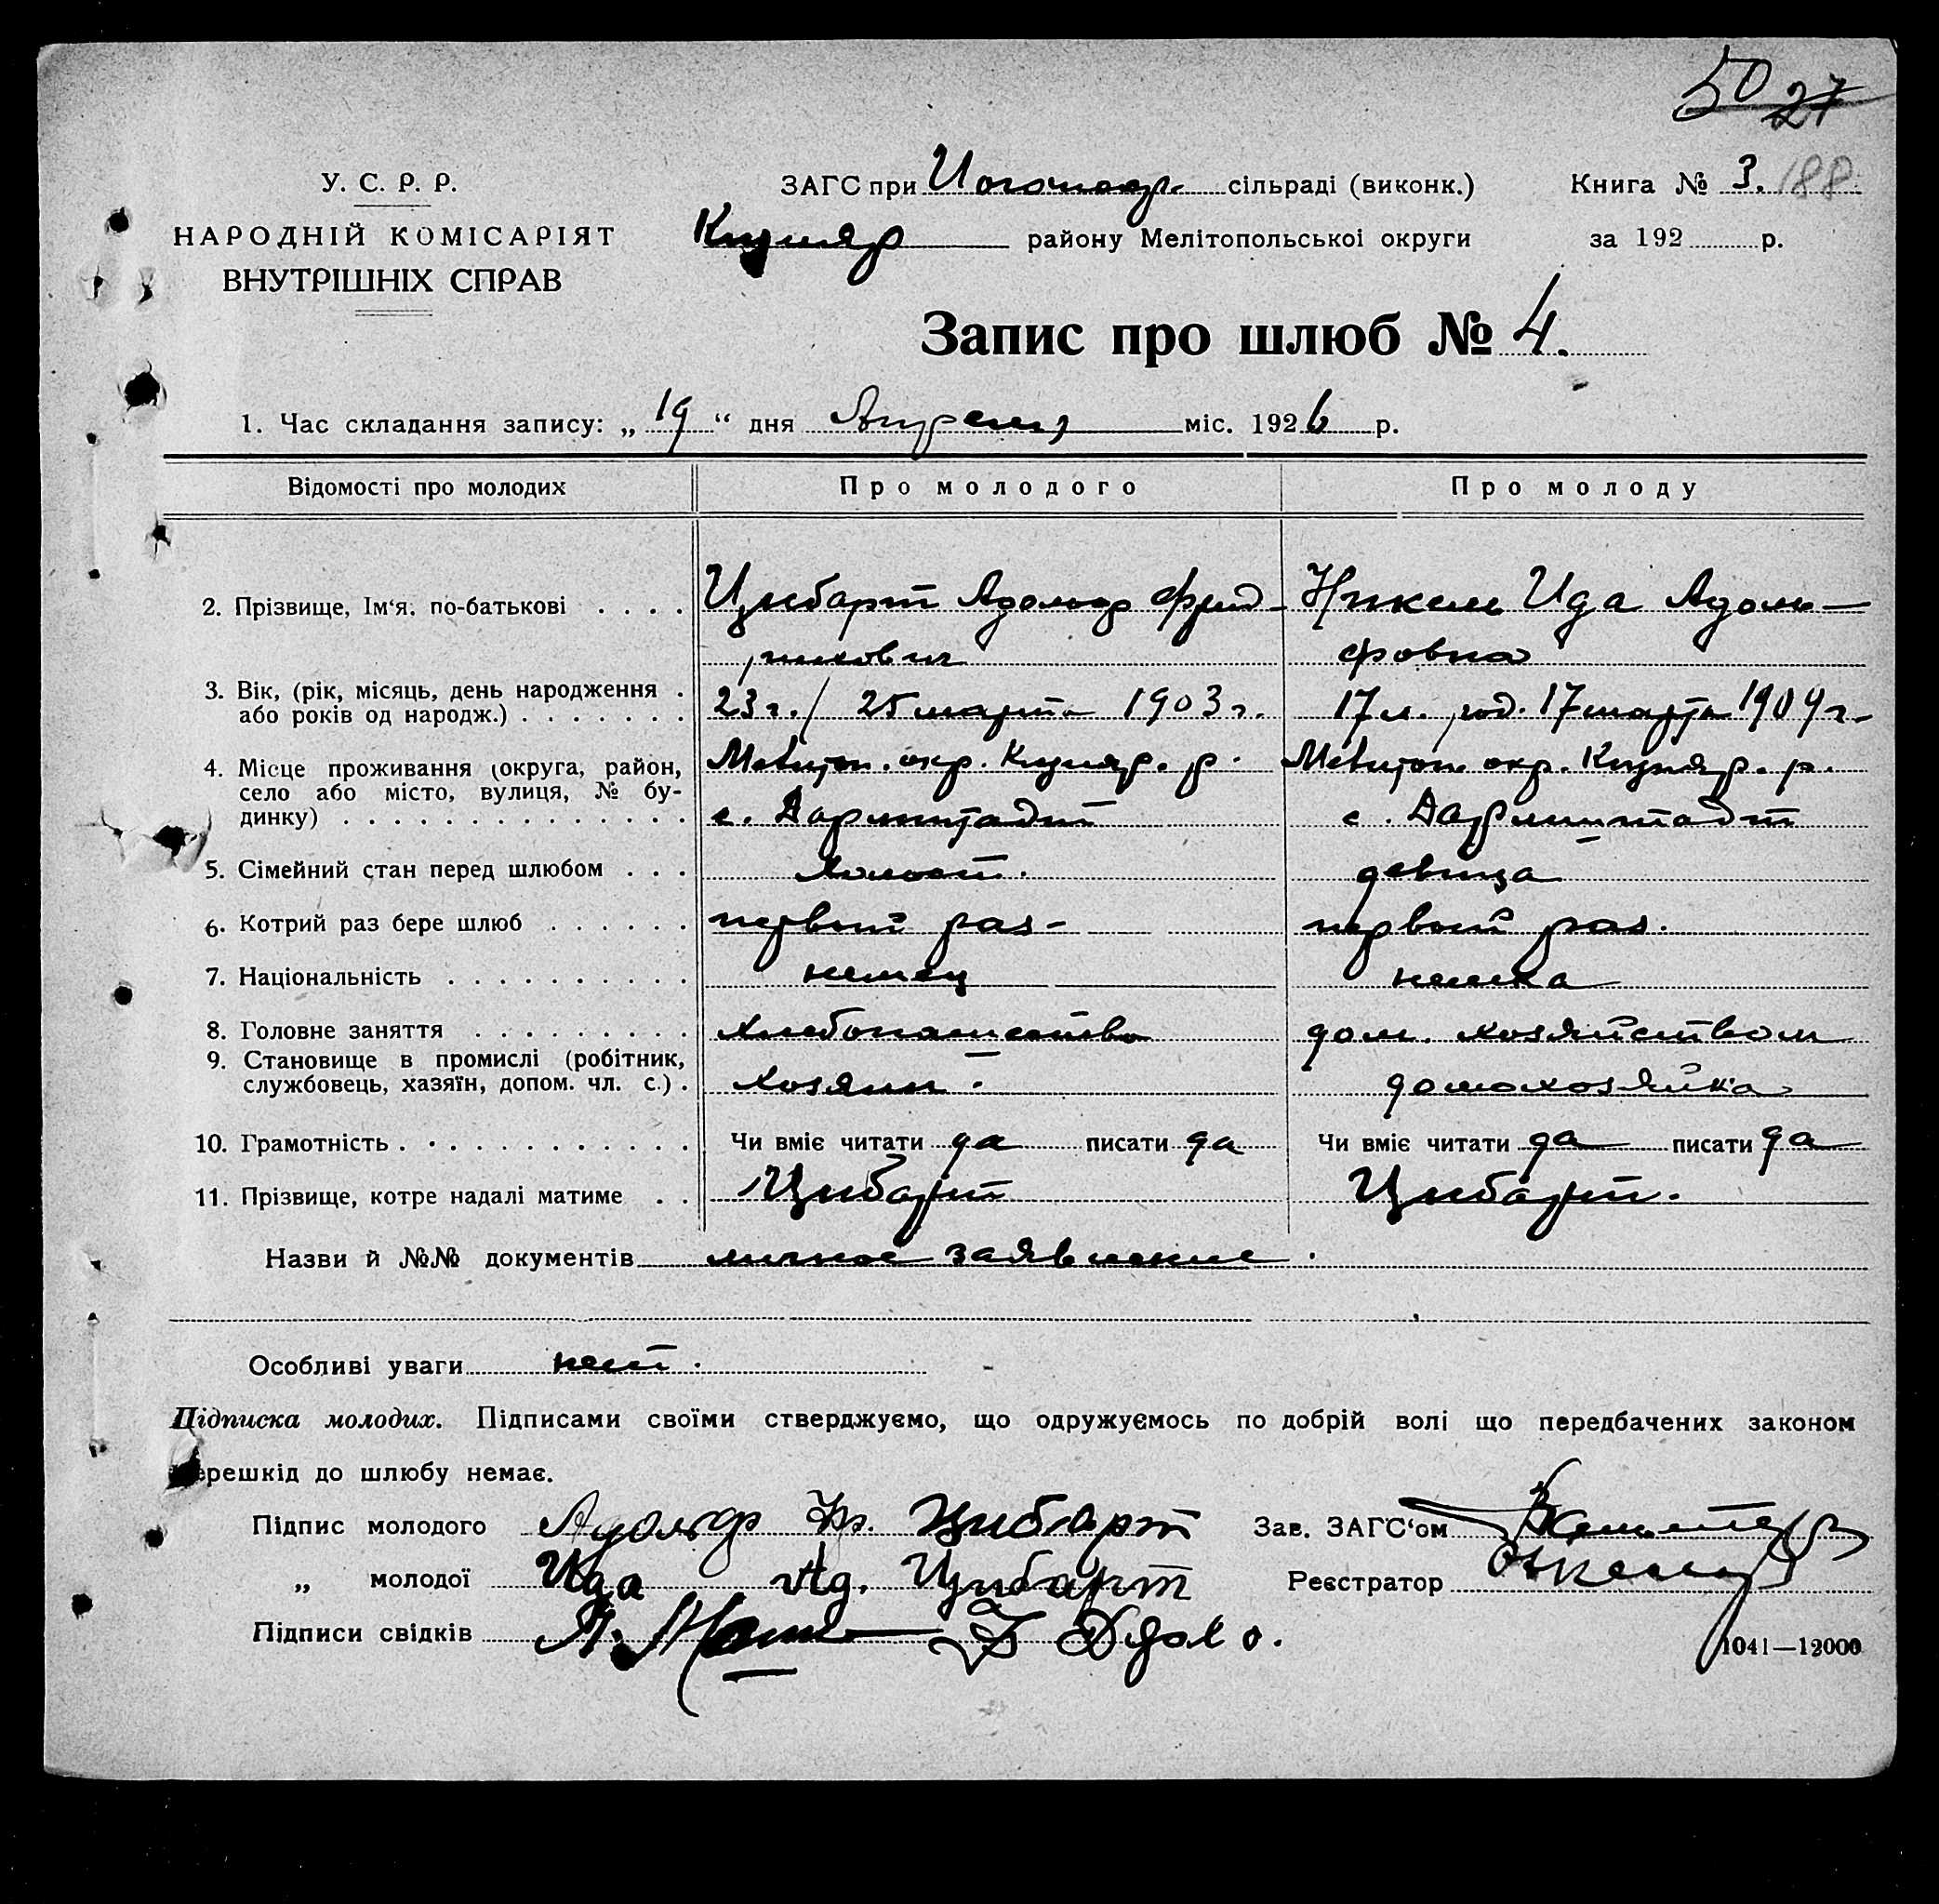 50 27
У. С. Р. Р.
НАРОДНІЙ КОМІСАРІЯТ
ВНУТРІШНІХ СПРАВ
ЗАГС при сільраді (виконк.)
Книга № 3. 188
Кизияр району Мелітопольської округи
за 192 р.
Запис про шлюб № 4.
1. Час складання запису: „ 19 “ дня Апреля міс. 1926 р.
Відомості про молодих Про молодого Про молоду
2. Прізвище, Ім‘я, по-батькові . . . . Цибарт Адольф Фрид- Никель Ида Адоль-
рихович фовна
3. Вік, (рік, місяць, день народження .
або років од народж.) . . . . . . . 23 г. / 25 марта 1903 г. 17 л. род. 17 марта 1909 г.
4. Місце проживання (округа, район,
село або місто, вулиця, № бу-
динку) . . . . . . . . . . . . . .
Мелитоп. окр. Кизияр. р. Мелитоп. окр. Кизияр. р.
с. Дармштадт с. Дармштадт
5. Сімейний стан перед шлюбом . . . холост. девица
6. Котрий раз бере шлюб . . . . . . первый раз - первый раз.
7. Національність . . . . . . . . . . немец немка
8. Головне заняття . . . . . . . . . хлебопашество дом. хозяйством
9. Становище в промислі (робітник,
службовець, хазяїн, допом. чл. с.) . хозяин. домохозяйка
10. Грамотність . . . . . . . . . . . . Чи вміє читати да писати да Чи вміє читати да писати да
11. Прізвище, котре надалі матиме . . Цибарт Цибарт.
Назви й №№ документів личное заявление.
Особливі уваги нет.
Підписка молодих. Підписами своїми стверджуємо, що одружуємось по добрій волі що передбачених законом
перешкід до шлюбу немає.
Підпис молодого Адольф Фр. Цибарт Зав. ЗАГС‘ом
„ молодої Ида Ад. Цибарт Реєстратор
Підписи свідків
1041—12000